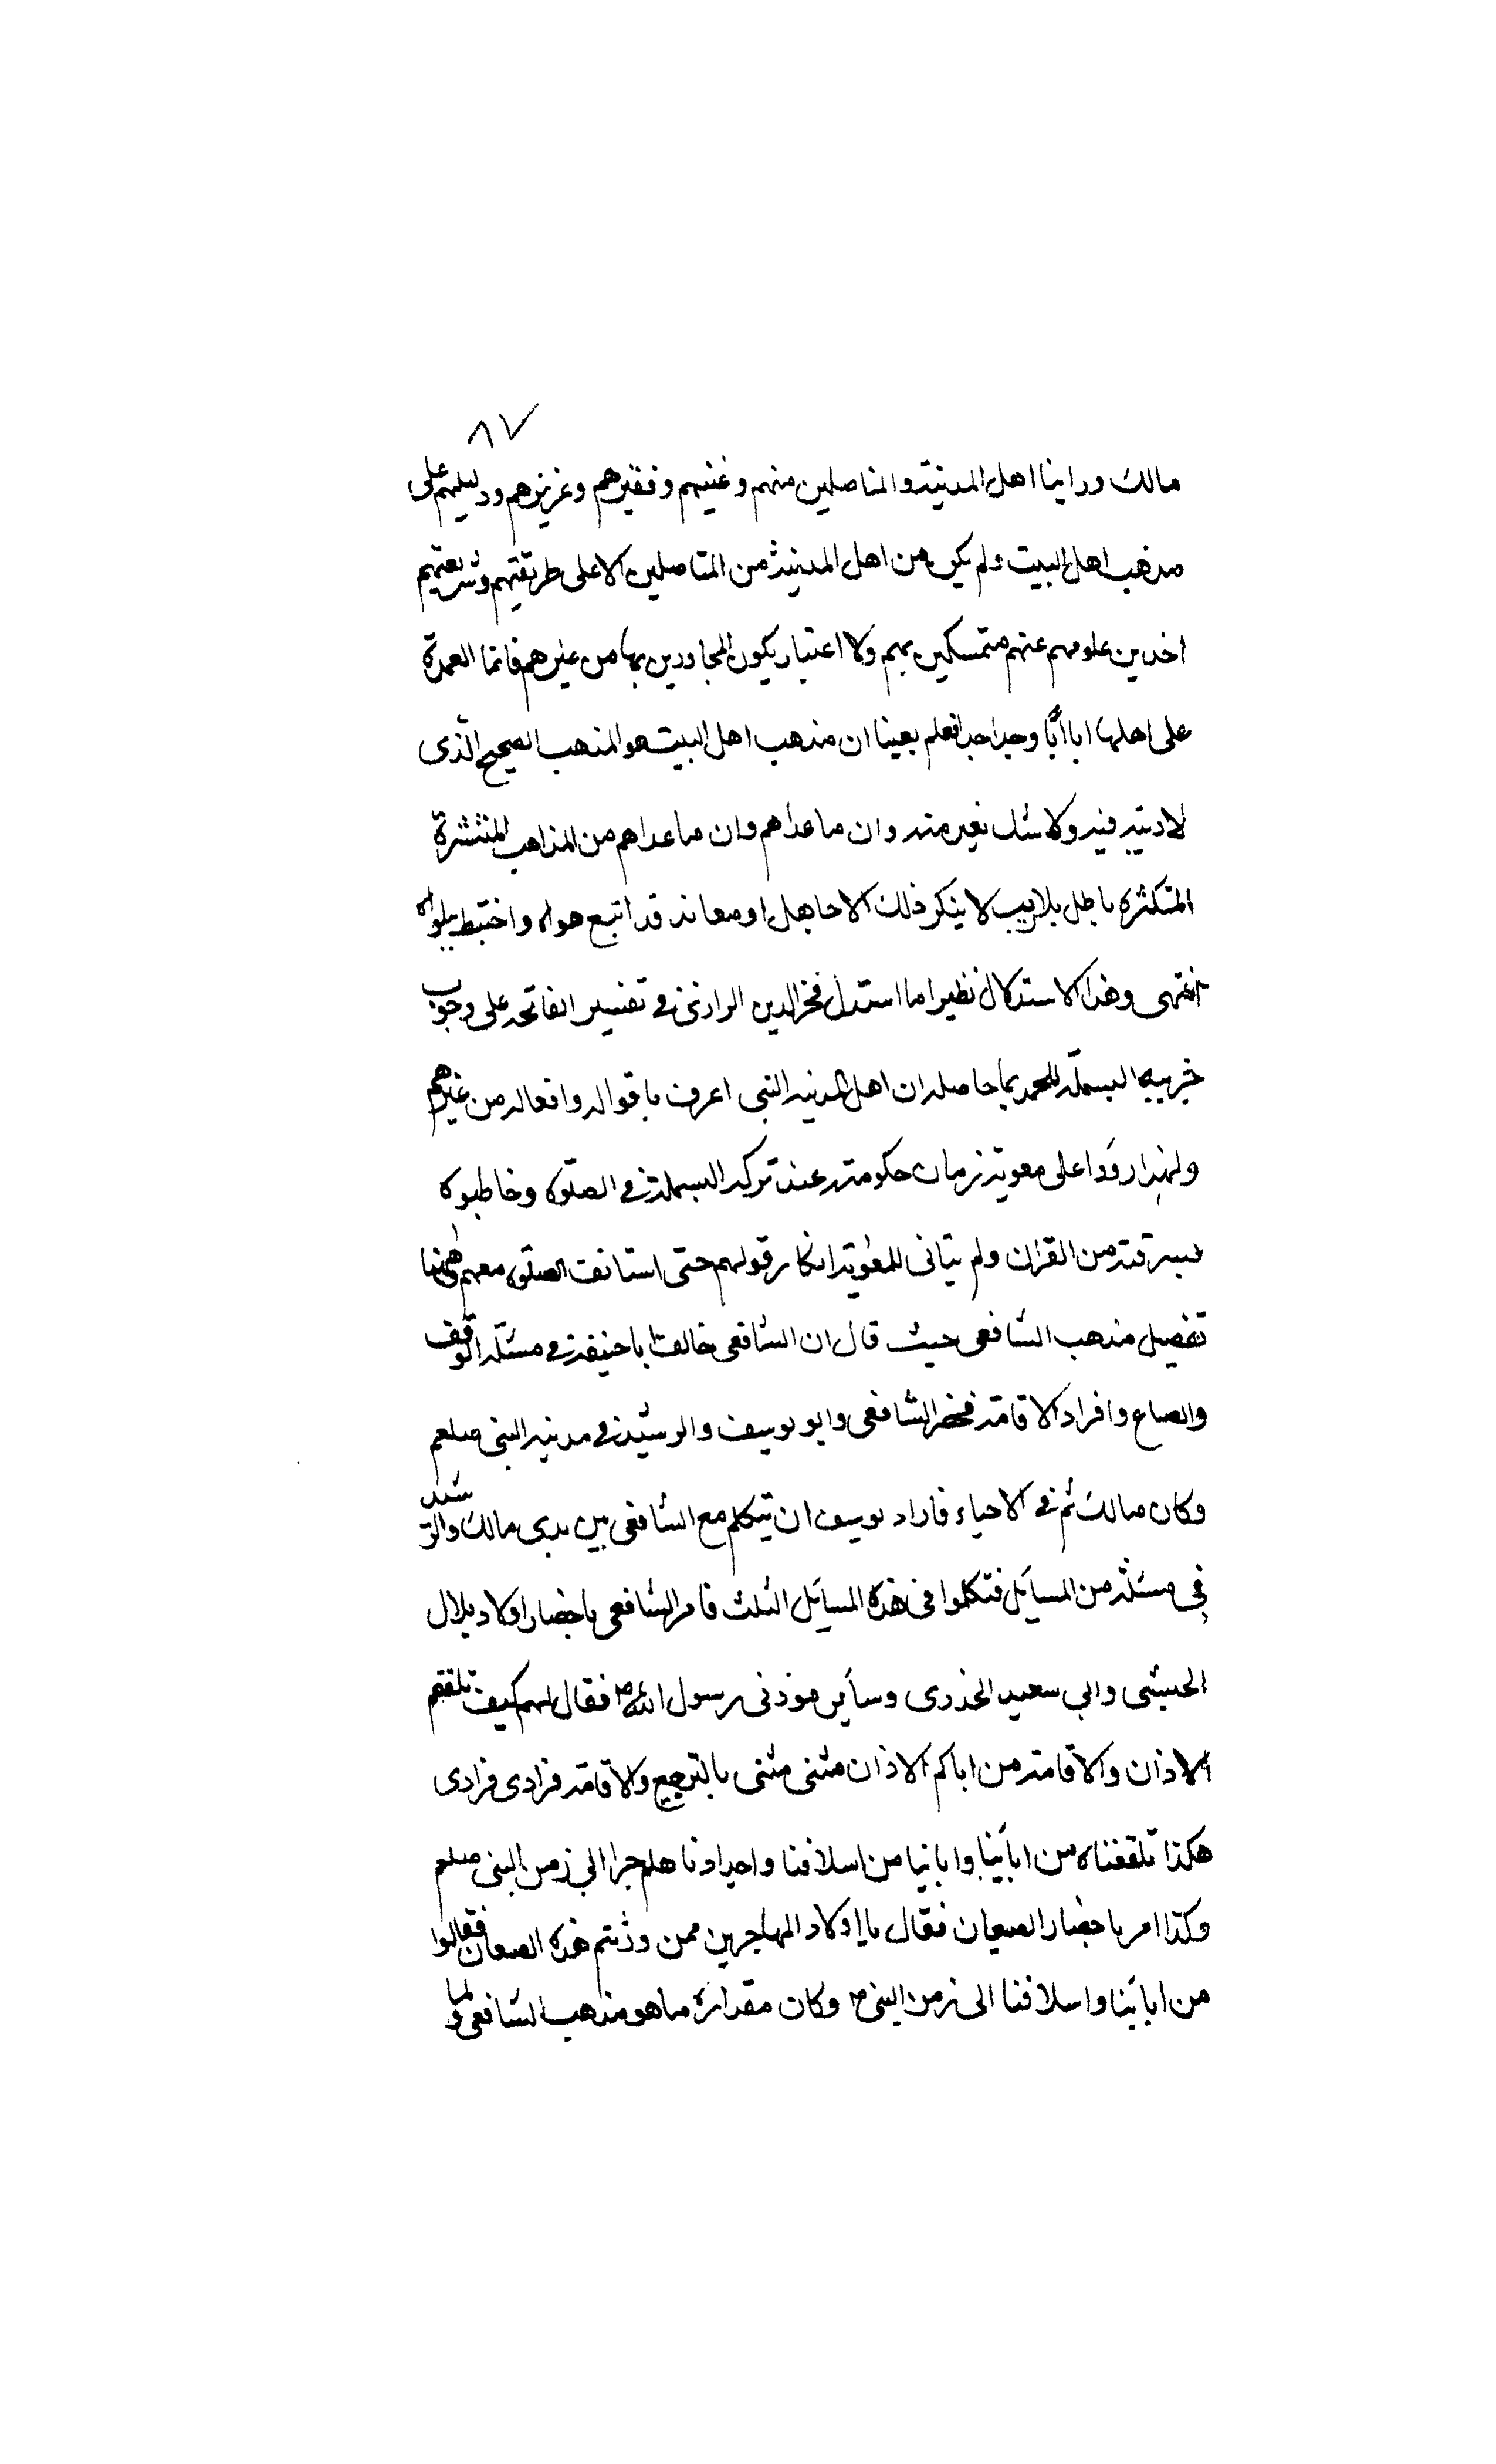 ٨٧
مالك وراينا اهل المدينة والمتاصلين منهم وغنيهم وفقيرهم وعزيزهم وذليلهم على
مذهب اهل البيت ولم يكن من اهل المدينة من المتاصلين الا على طريقتهم وشريعتهم
اخذين علومهم عنهم متمسكين بهم ولا اعتبار بكون المجاورين بها من غيرهم فانما العمدة
على اهلها ابا أبًا وجدا جدا فعلم يقينا ان مذهب اهل البيت هو المذهب الصحيح الذى
لا ريبة فيه ولا شك يعتريه وان ما عداهم وان ما عداهم من المذاهب المنتشرة
المتكثرة باطل بلا ريب لا ينكر ذلك الا جاهل او معاند قد اتبع هواه واختبط
انتهى وهذا الاستدلال نظير ما استدل فخر الدين الرازى فى تفسير الفاتحة على وجوب
البسملة للحمد بما حاصله ان اهل المدينة النبى اعرف باقواله وافعاله من غيرهم
ولهذا ردوا على معوية زمان حكومته عند تركه البسملة فى الصلوة وخاطبوه
بسرقته من القران ولم يتانى للمعوية انكار قولهم حتى استانف الصلوة معهم وههنا
تفصيل مذهب الشافعى حيث قال ان الشافعى خالف ابا حنيفة فى مسئلة الوقف
والصاع وافراد الاقامة فحضر الشافعى وابو يوسف والرشيد فى مدينة النبى صلعم
وكان مالك ثم فى الاحياء فاراد يوسف ان يتكلم مع الشافعى بين يدى مالك والرشيد
فى مسئلة من المسائل فتكلموا فى هذه المسائل الثلث فامر الشافعى باحضار اولاد بلال
الحبشى وابى سعيد الخدرى وسائر موذنى رسول الله ص فقال لهم كيف تلقفتم
الاذان والاقامة من اباكم الاذان مثنى مثنى بالترجيع والاقامة فرادى فرادى
هكذا تلقفناه من ابائنا وابائنا من اسلافنا واجدادنا هلم جرا الى زمن النبى صلعم
وكذا امر باحضار الصيعان فقال يا اولاد المهاجرين ممن ورثتم هذه الصعان فقالوا
من ابائنا واسلافنا الى زمن النبى ص وكان مقداره ما هو مذهب الشافعى